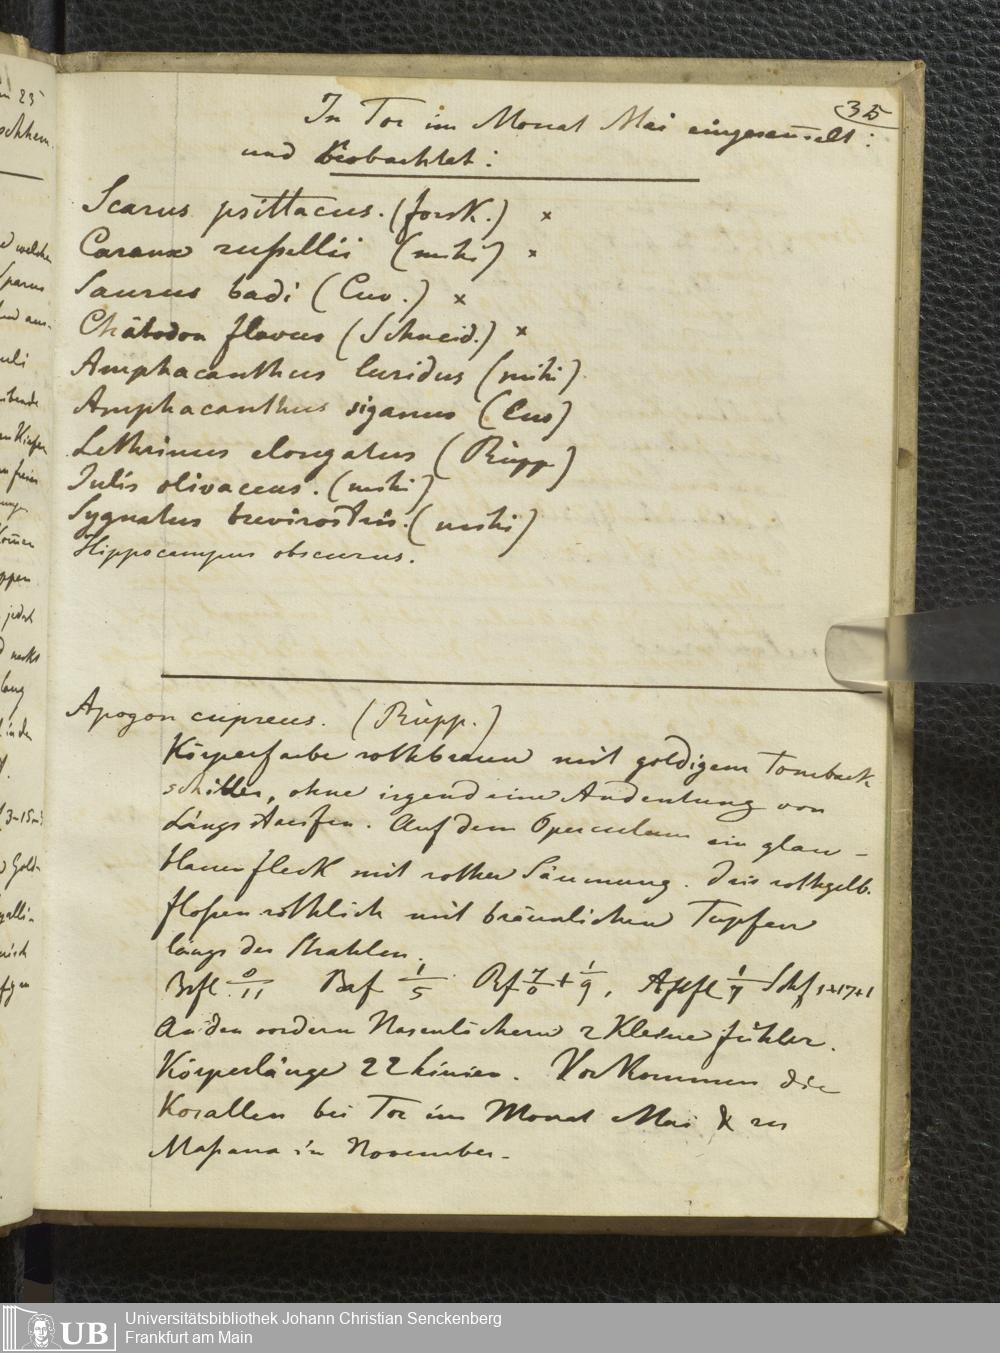 35
In Tor im Monat Mai eingesamelt:
und Beobachtet:
Scarus psittacus. (forsk.) ×
Caranx rußellii (mihi) ×
Saurus badi (Cuv.) ×
Chätodon flavus (Schneid.) ×
Amphacanthus luridus (mihi)
Amphacanthus siganus (Cuv)
Lethrinus elongatus (Rüpp)
Julis olivaceus. (mihi)
Sygnatus brevirostris. (mihi)
Hippocampus obscurus.
Apogon cupreus. (Rüpp.)
Körperfarbe rothbraun mit goldigem Tomback
schiller, ohne irgend eine Andeutung von
Längsstreifen. Auf dem Operculum ein glau-
blauer fleck mit rother Säumung. Iris rothgelb.
floßen röthlich mit bräunlichen Tupfen
längs der Strahlen.
Brfl. 0/11 Baf 1/5 Rf 7/0 + 1/9, Affl 1/7 Schf 1+17+1
An den vordern Nasenlöchern 2 Kleine fühler.
Körperlänge 22 Linien. Vorkommen die
Korallen bei Tor im Monat Mai & zu
Maßaua in November.
Universitätsbibliothek Johann Christian Senckenberg
Frankfurt am Main
UB